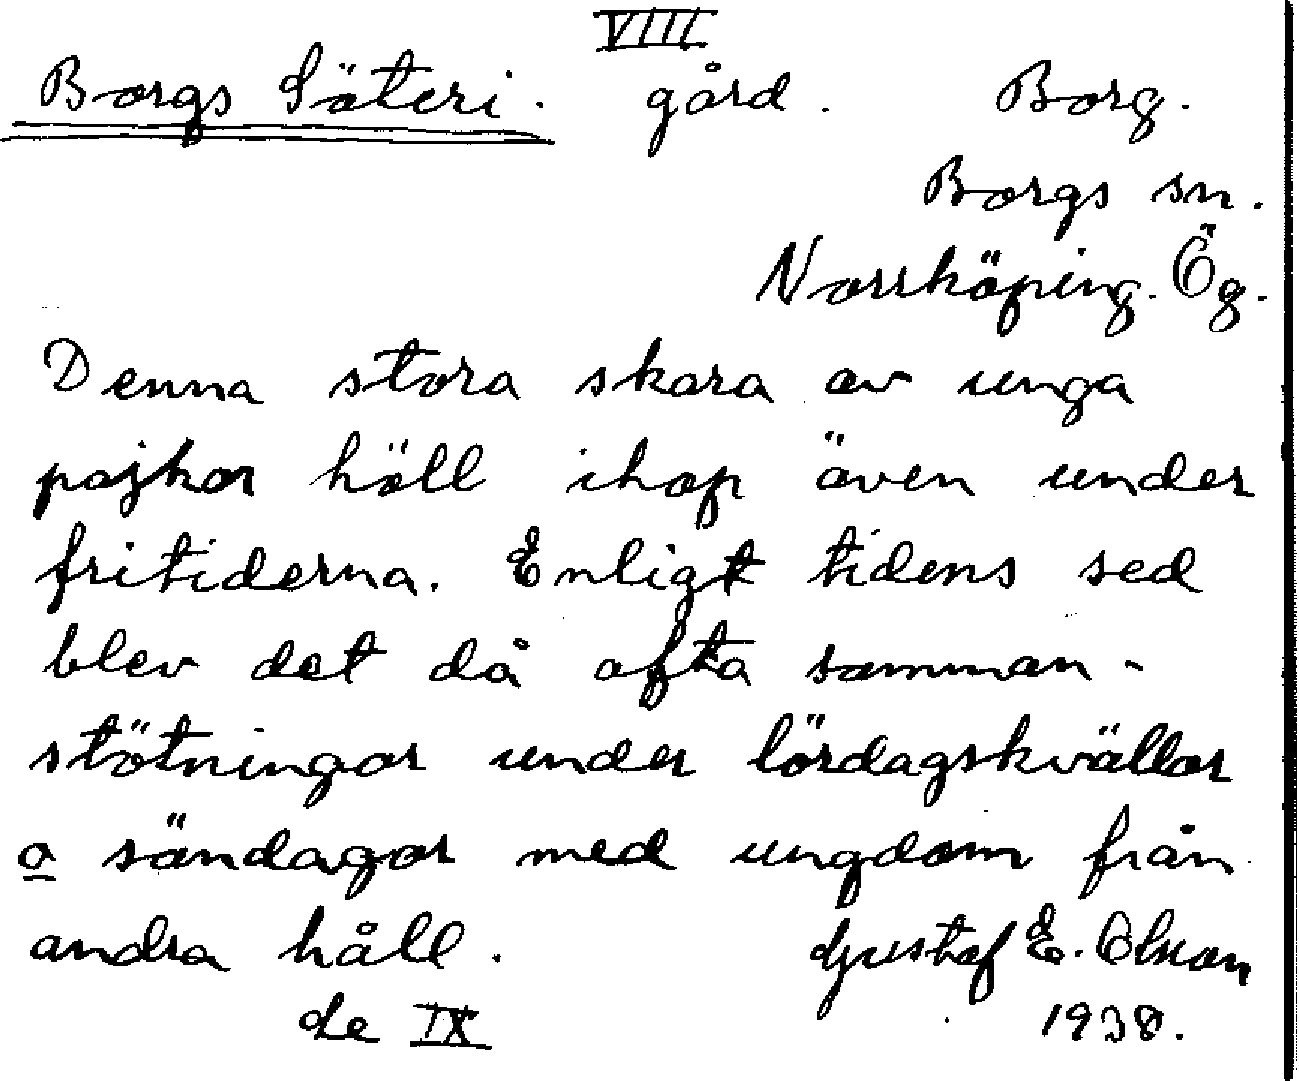 VIII
Borgs Säteri. gård. Borg.
Borgs sn.
Norrköping. Ög.
Denna stora skara av unga
pojkar höll ihop även under
fritiderna. Enligt tidens sed
blev det då ofta samman-
stötningar under lördagskvällar
o söndagar med ungdom från
andra håll. Gustaf E. Olsson
de IX 1938.